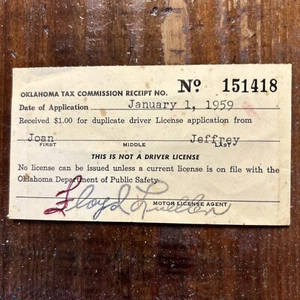 OKLAHOMA TAX COMMISSION RECEIPT NO. Nº 151418
Date of Application January 1, 1959
Received $1.00 for duplicate driver License application from
Joan Jeffrey
FIRST MIDDLE LAST
THIS IS NOT A DRIVER LICENSE
No license can be issued unless a current license is on file with the
Oklahoma Department of Public Safety.
Floyd
MOTOR LICENSE AGENT